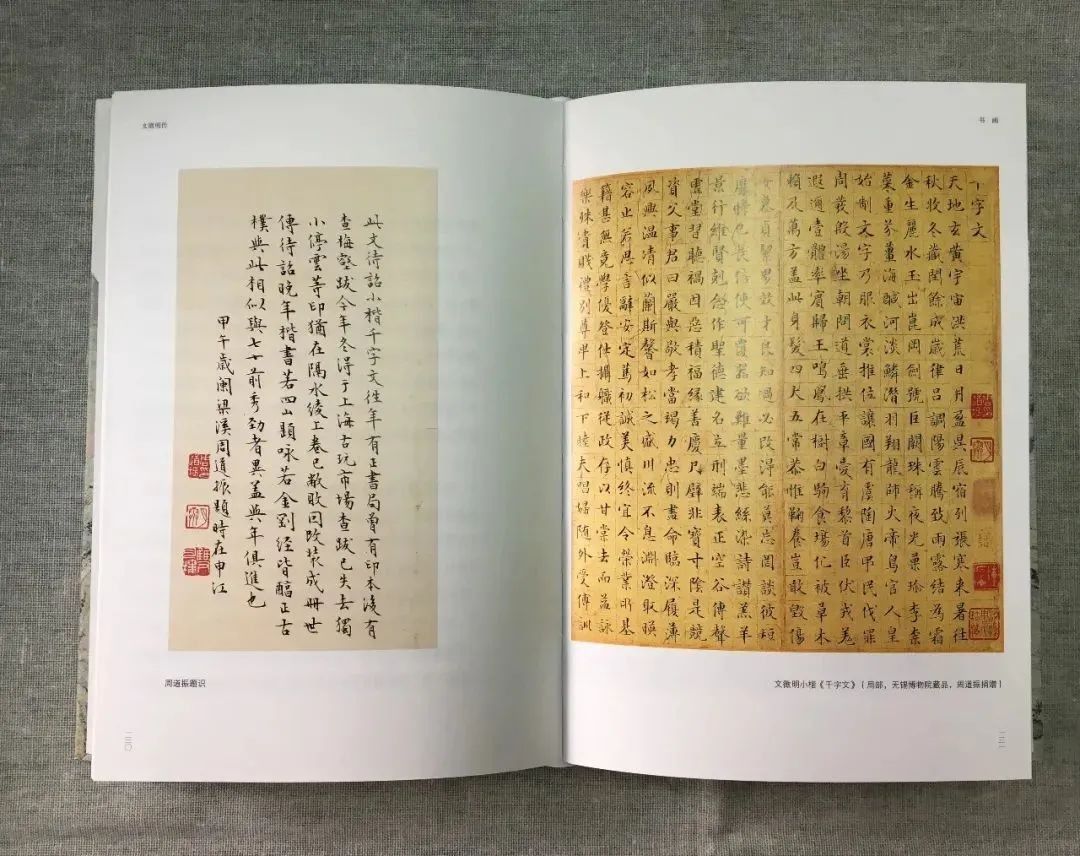 文徵明传
此文待詔小楷千字文往年有正書局曾有印本後有
查梅壑跋今年冬得于上海古玩市場查跋已失去獨
小停雲等印猶在隔水綾上卷已敝敗因改裝成冊世
傳待詔晚年楷書若四山題咏若金剛經皆醇正古
樸與此相似與七十前秀勁者異蓋與年俱進也
甲午歲闌梁溪周道振題時在申江
周道振题识
一三〇
书画
千字文
天地玄黄宇宙洪荒日月盈昃辰宿列張寒來暑往
秋收冬藏閏餘成歲律吕調陽雲騰致雨露結為霜
金生麗水玉出崑岡劍號巨闕珠稱夜光菓珍李柰
菜重芥薑海鹹河淡鱗潛羽翔龍師火帝鳥官人皇
始制文字乃服衣裳推位讓國有虞陶唐弔民伐罪
周發殷湯坐朝問道垂拱平章愛育黎首臣伏戎羌
遐邇壹體率賓歸王鳴鳳在樹白駒食場化被草木
賴及萬方蓋此身髮四大五常恭惟鞠養豈敢毀傷
女慕貞絜男效才良知過必改得能莫忘罔談彼短
靡恃己長信使可覆器欲難量墨悲絲染詩讚羔羊
景行維賢剋念作聖德建名立形端表正空谷傳聲
虛堂習聽禍因惡積福緣善慶尺璧非寶寸陰是競
資父事君曰嚴與敬孝當竭力忠則盡命臨深履薄
夙興温凊似蘭斯馨如松之盛川流不息淵澄取暎
容止若思言辭安定篤初誠美慎終宜令榮業所基
籍甚無竟學優登仕攝職從政存以甘棠去而益詠
樂殊貴賤禮別尊卑上和下睦夫唱婦隨外受傅訓
文徵明小楷《千字文》（局部，无锡博物院藏品，周道振捐赠）
一三一